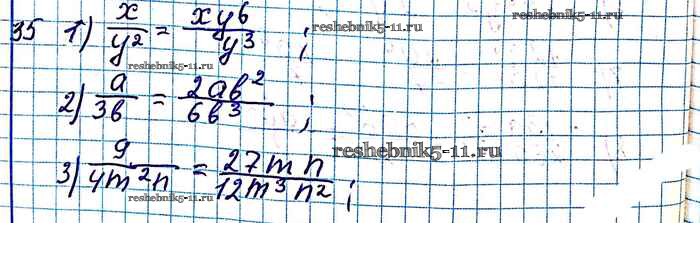 35 1) x/y² = xy⁶/y³ ;
reshebnik5-11.ru
reshebnik5-11.ru
2) a/3b = 2ab²/6b³ ;
reshebnik5-11.ru
3) 9/4m²n = 27mn/12m³n² ;
reshebnik5-11.ru
reshebnik5-11.ru